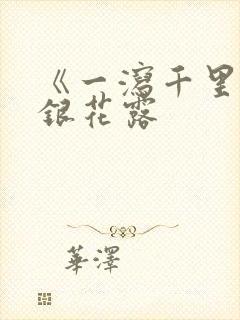 《一瀉千里
銀花露
華澤